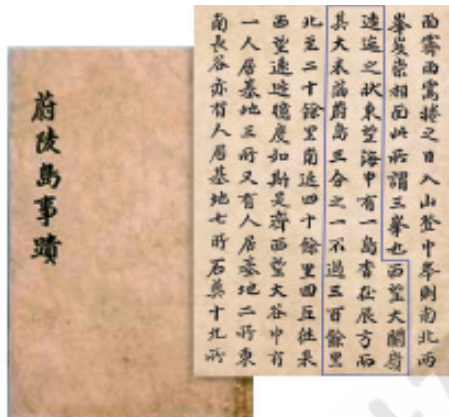 蔚陵島事蹟
雨霽雨霾捲之日入山登中峯則南北兩
峯岌崇相面此所謂三峯也西望大關嶺
逶迤之狀東望海中有一島杳在辰方而
其大未滿蔚島三分之一不過三百餘里
北至二十餘里南近四十餘里回互往來
西望遠近臆度如斯是齊西望大谷中有
一人居基地三所又有人居基地二所東
南長谷亦有人居基地七所石葬十九所